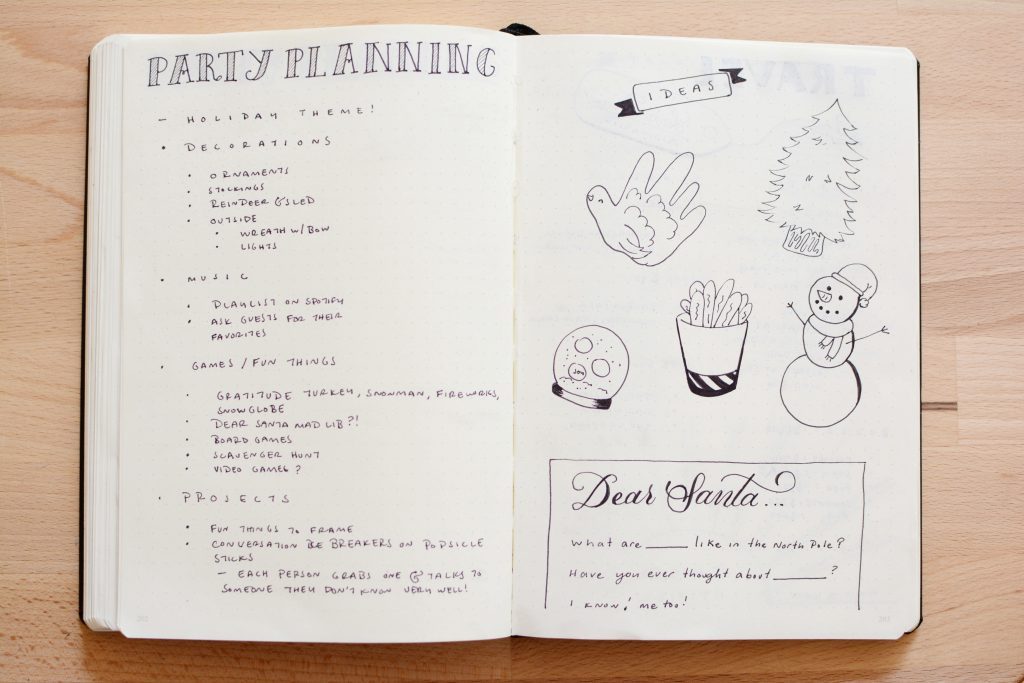 PARTY PLANNING
– HOLIDAY THEME!
• DECORATIONS
• ORNAMENTS
• STOCKINGS
• REINDEER & SLED
• OUTSIDE
• WREATH W/ BOW
• LIGHTS
• MUSIC
• PLAYLIST ON SPOTIFY
• ASK GUESTS FOR THEIR
FAVORITES
• GAMES / FUN THINGS
• GRATITUDE TURKEY, SNOWMAN, FIREWORKS,
SNOWGLOBE
• DEAR SANTA MAD LIB?!
• BOARD GAMES
• SCAVENGER HUNT
• VIDEO GAMES?
• PROJECTS
• FUN THINGS TO FRAME
• CONVERSATION BE BREAKERS ON POPSICLE
STICKS
– EACH PERSON GRABS ONE & TALKS TO
SOMEONE THEY DON'T KNOW VERY WELL!
202
IDEAS
JOY
Dear Santa...
What are _____ like in the North Pole?
Have you ever thought about _______?
I know! me too!
203